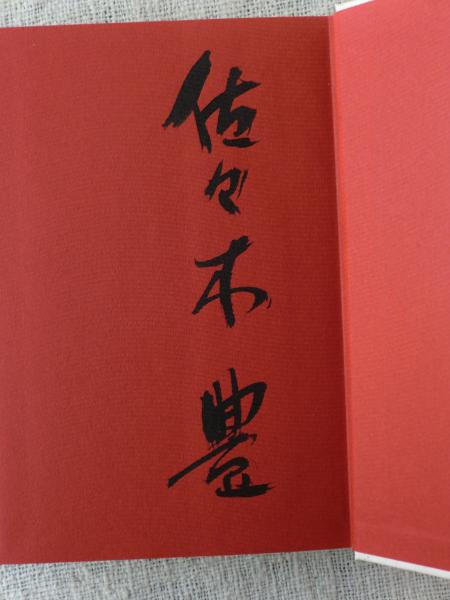 佐々木豊